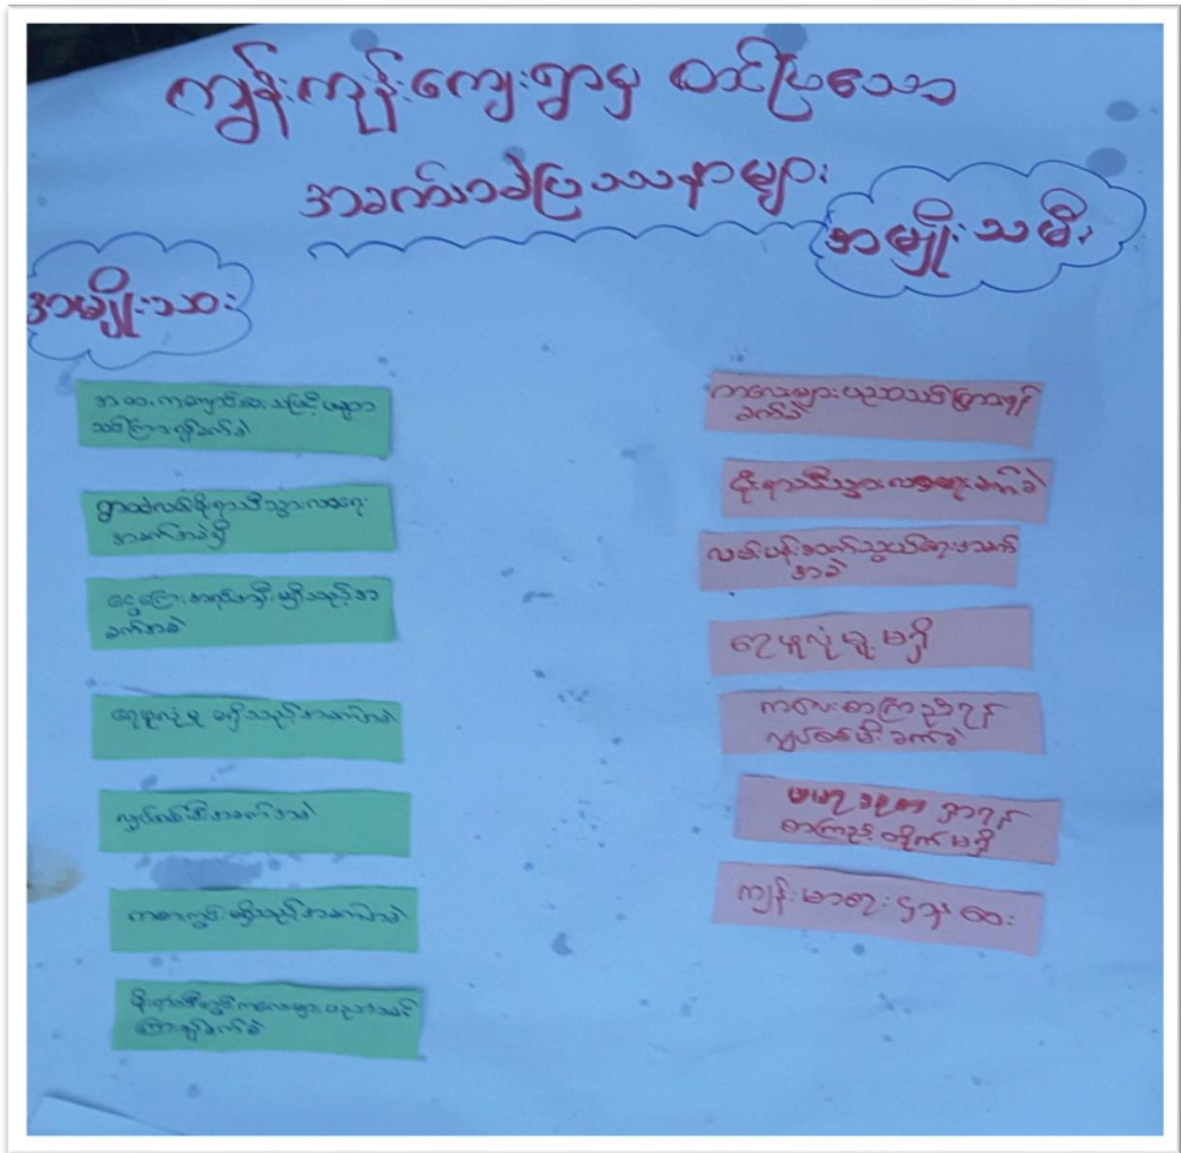 ကျွန်းကုန်းကျေးရွာမှ တင်ပြသော
အခက်အခဲပြဿနာများ
အမျိုးသမီး
အမျိုးသား
အထက ကျောင်း
သင်ကြားရန်ခက်ခဲ
ရွာထဲလမ်မိုးရာသီသွားလာရေး
အခက်အခဲရှိ
ငွေကြေးအရင်းအနှီးမရှိသည့်အ
ခက်အခဲ
ရေမလုံမှု မရှိသည့်အခက်အခဲ
လျှပ်စစ်မီးအခက်အခဲ
ကစားကွင်းမရှိသည့်အခက်အခဲ
မိုးရာသီတွင်ကလေးများပညာသင်
ကြားရန်ခက်ခဲ
ကလေးများပညာသင်ကြားရန်
ခက်ခဲ
မိုးရာသီသွားလာရေးခက်ခဲ
လမ်းပန်းဆက်သွယ်ရေးအခက်
အခဲ
မလုံမှု မရှိ
ကလေးစာကြည့်ရန်
လျှပ်စစ်မီးခက်ခဲ
ဗဟုသုတ ရှာရန်
စာကြည့်တိုက်မရှိ
ကျန်းမာရေး ဌာန ဝေး